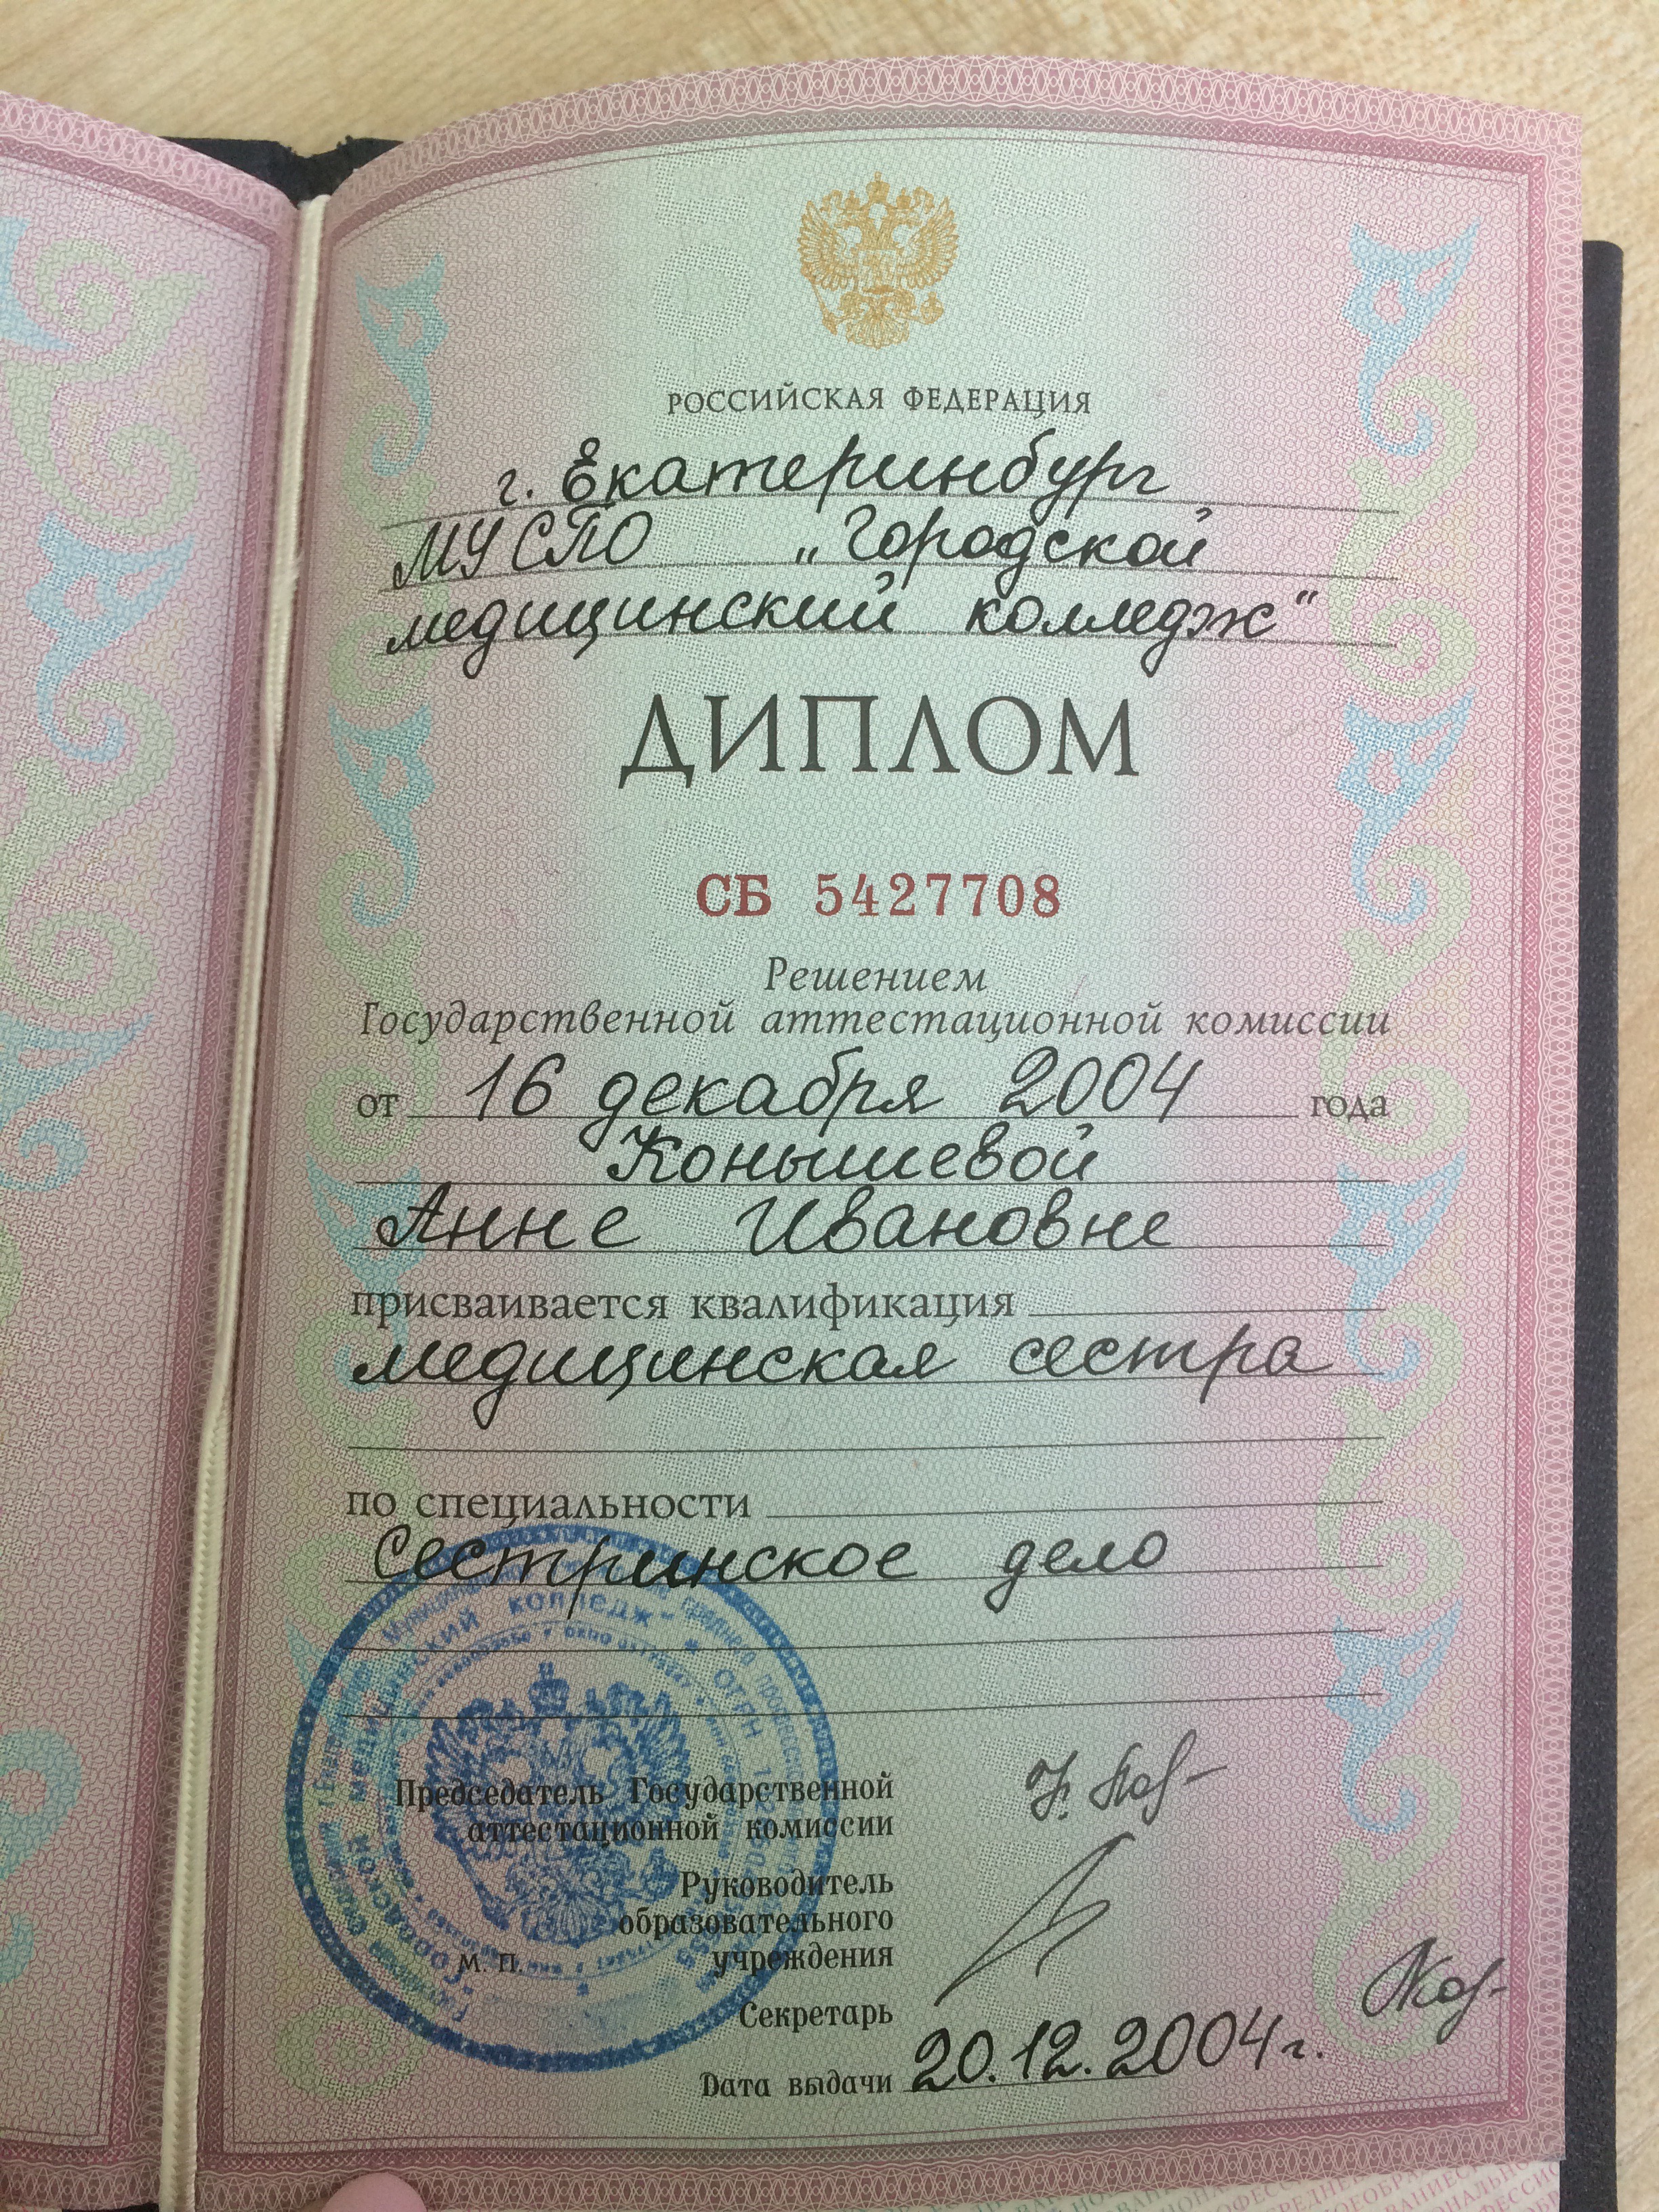 РОССИЙСКАЯ ФЕДЕРАЦИЯ
г. Екатеринбург
МУ СПО „Городской
медицинский колледж“
ДИПЛОМ
СБ 5427708
Решением
Государственной аттестационной комиссии
от 16 декабря 2004 года
Конышевой
Анне Ивановне
присваивается квалификация
медицинская сестра
по специальности
Сестринское дело
медицинский колледж" * ОГРН
Председатель Государственной
аттестационной комиссии
Руководитель
образовательного
учреждения
М. П.
Секретарь
Дата выдачи 20.12.2004г.